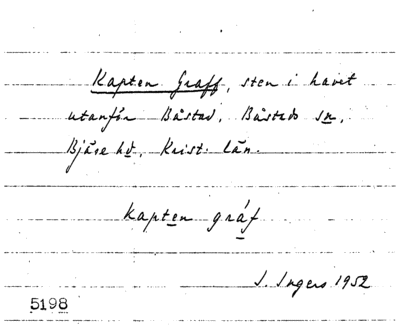 Kapten Graff, sten i havet
utanför Båstad, Båstads sn,
Bjäre hd, Krist. län.
kapten gráf
I. Ingers 1952
5198